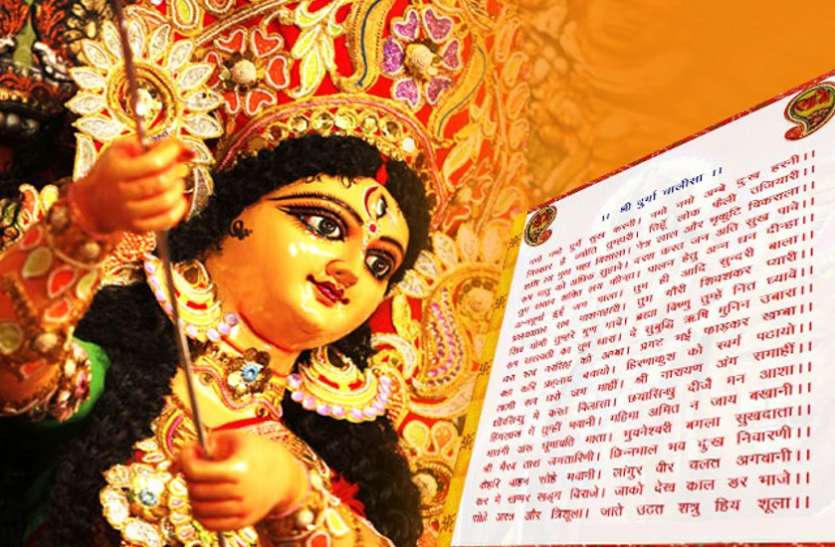 ।। श्री दुर्गा चालीसा ।।
नमो नमो दुर्गे सुख करनी। नमो नमो अम्बे दुःख हरनी।।
निरंकार है ज्योति तुम्हारी। तिहूँ लोक फैली उजियारी।।
शशि ललाट मुख महा विशाला। नेत्र लाल और भृकुटि विकराला।।
रूप मातु को अधिक सुहावे। दरश करत जन अति सुख पावे।।
तुम संसार शक्ति लय कीना। पालन हेतु अन्न धन दीन्हा।।
अन्नपूर्णा हुई जग पाला। तुम ही आदि सुन्दरी बाला।।
प्रलयकाल सब नाशनहारी। तुम गौरी शिवशंकर प्यारी।।
शिव योगी तुम्हरे गुण गावें। ब्रह्मा विष्णु तुम्हें नित ध्यावें।।
रूप सरस्वती का तुम धारा। दे सुबुधि ऋषि मुनिन उबारा।।
धरा रूप नरसिंह को अम्बा। प्रगट भई फाड़कर खम्बा।।
रक्षा करि प्रहलाद बचायो। हिरणाकुस को स्वर्ग पठायो।।
लक्ष्मी रूप धरो जग माहीं। श्री नारायण अंग समाहीं।।
क्षीरसिन्धु में करत विलासा। दयासिन्धु दीजै मन आशा।।
हिंगलाज में तुम्हीं भवानी। महिमा अमित न जाय बखानी।।
मातंगी अरु धूमावति माता। भुवनेश्वरी बगला सुखदाता।।
श्री भैरव तारा जगतारिणी। छिन्नभाल भव दुःख निवारणी।।
केहरि वाहन सोहे भवानी। लांगुर वीर चलत अगवानी।।
कर में खप्पर खड्ग विराजे। जाको देख काल डर भाजे।।
सोहे अस्त्र और त्रिशूला। जाते उठत शत्रु हिय शूला।।